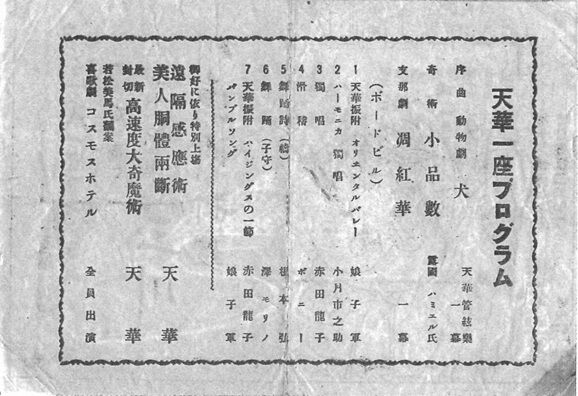 天華一座プログラム
序曲 動物劇 犬 天華管絃樂 一幕
奇術 小品數 露國 ハミエル氏
支那劇 凋紅華 一幕
(ボードビル)
1 天華振附 オリエンタルバレー 娘子軍
2 ハーモニカ獨唱 小月市之助
3 獨唱 赤田龍子
4 滑稽 ボニー
5 舞踏詩 松本弘
6 舞踊(子守) 澤モリノ
7 天華振附 ハイジングスの一節 赤田龍子
バンブルソング 娘子軍
御好に依り特別上場
遠隔感應術
美人胴體兩斷 天華
最新封切 高速度大奇魔術 天華
若松美鳥氏飜案
喜歌劇 コスモスホテル 全員出演